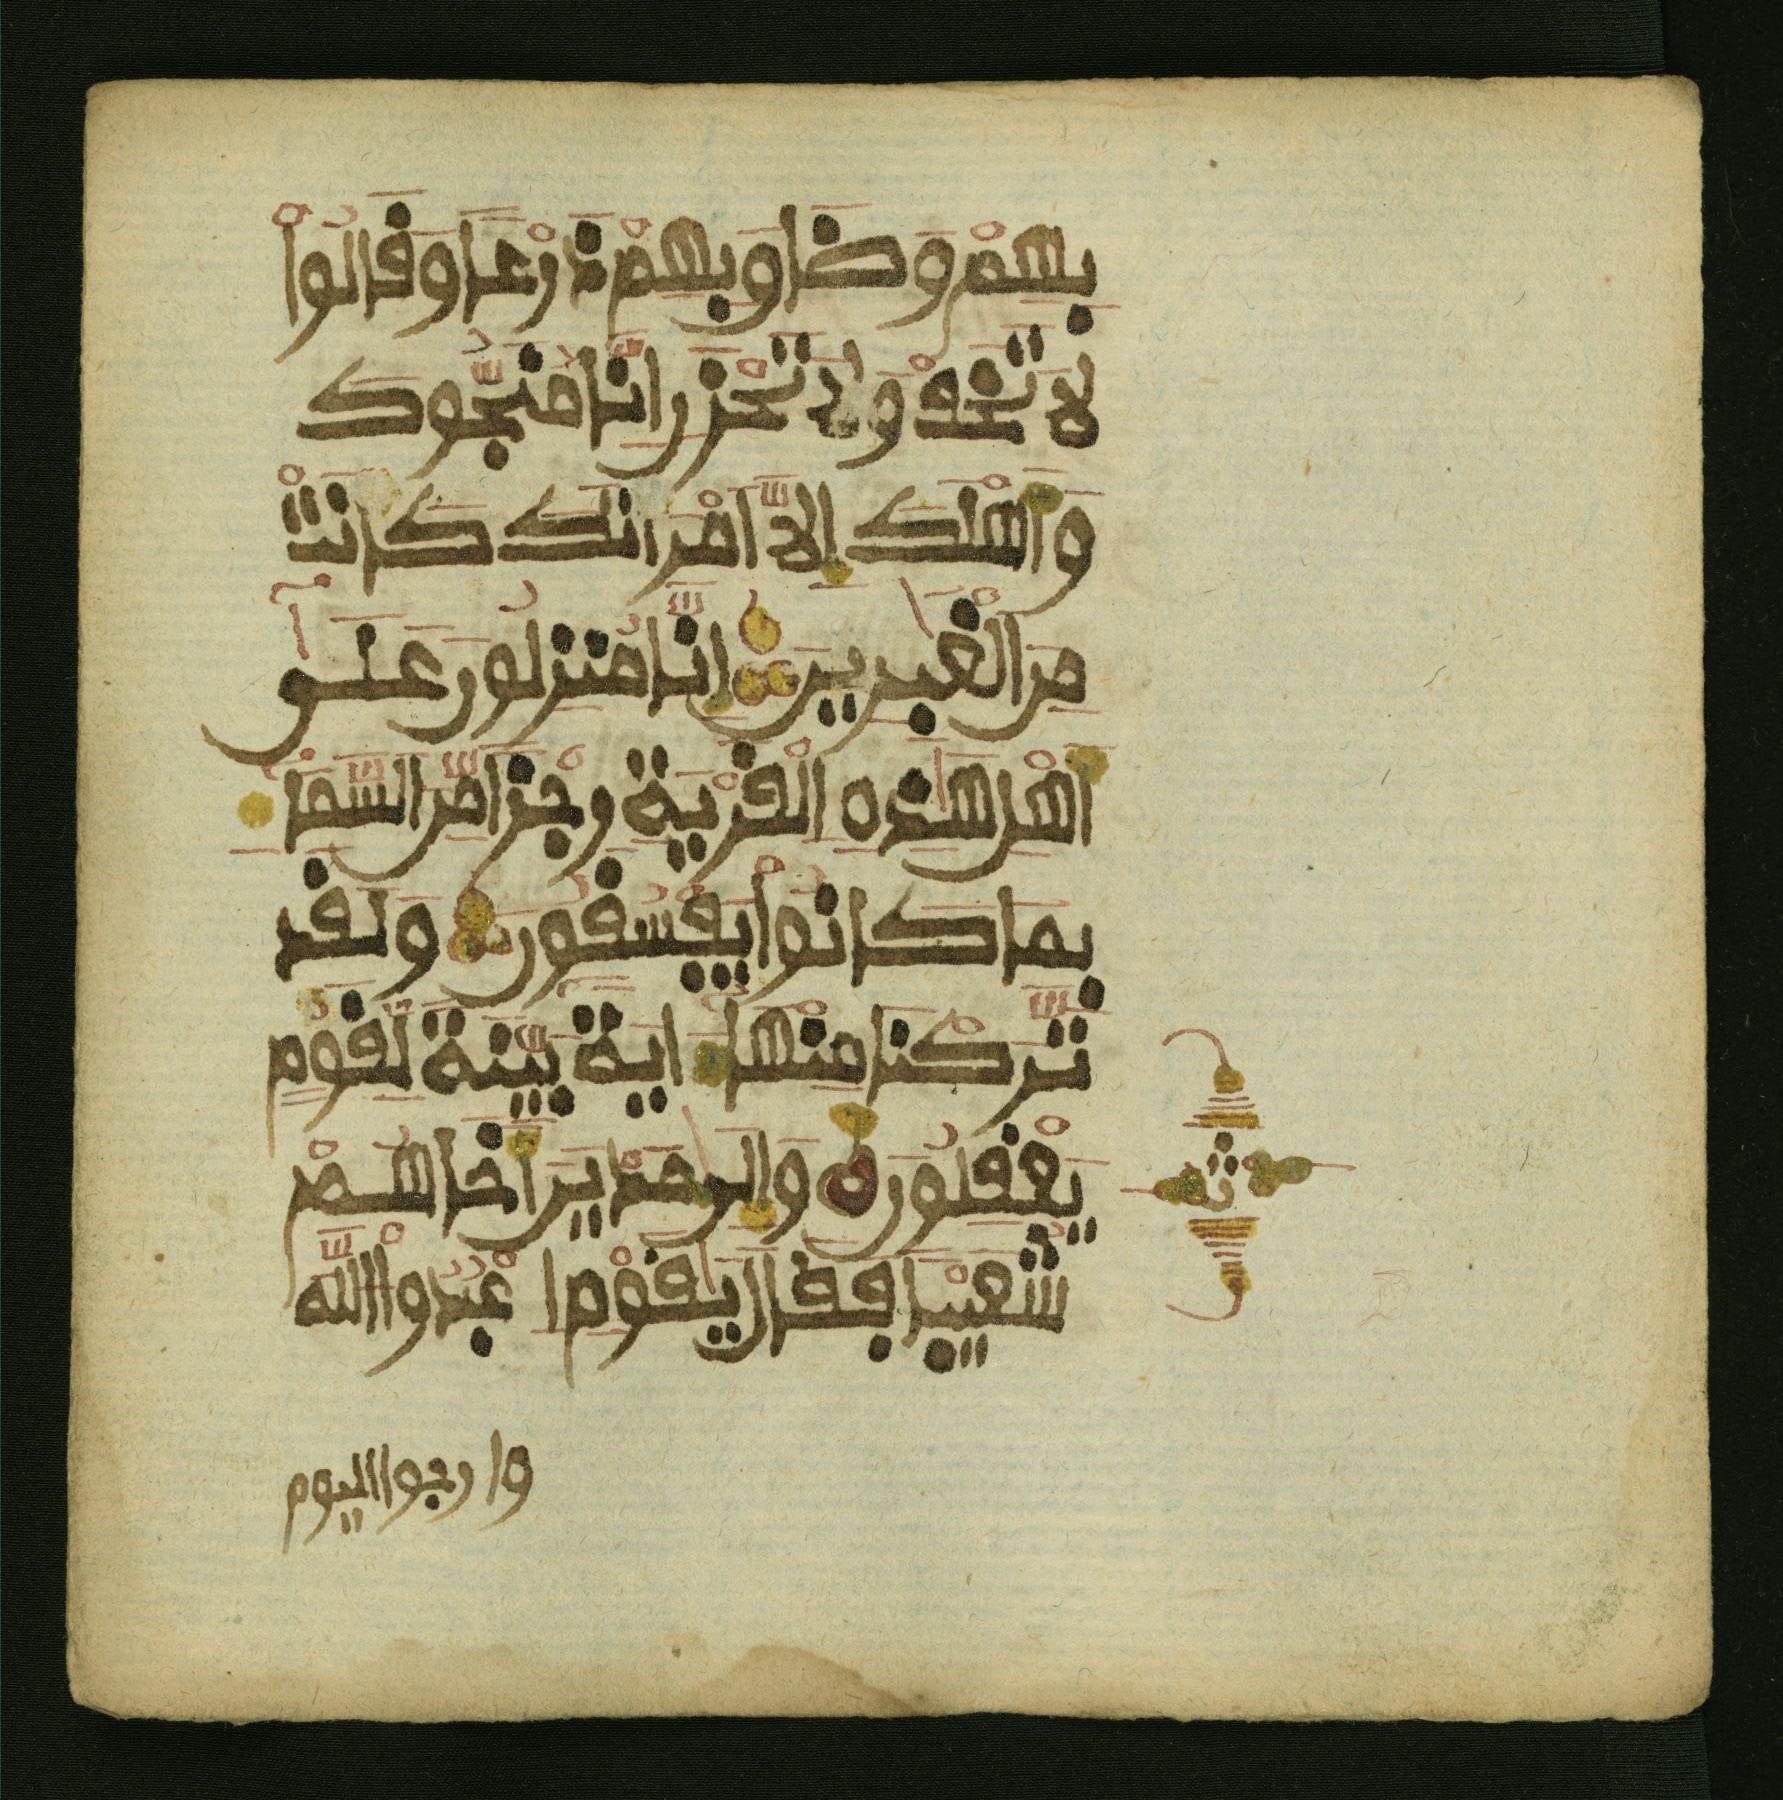 بِهِمْ وَضَاقَ بِهِمْ ذَرْعًا وَقَالُواْ
لَا تَخَفْ وَلَا تَحْزَنْ إِنَّا مُنَجُّوكَ
وَأَهْلَكَ إِلَّا امْرَأَتَكَ كَانَتْ
مِنَ الْغَٰبِرِينَ إِنَّا مُنزِلُونَ عَلَىٰٓ
أَهْلِ هَٰذِهِ الْقَرْيَةِ رِجْزًا مِّنَ السَّمَا
بِمَا كَانُواْ يَفْسُقُونَ وَلَقَد
تَّرَكْنَا مِنْهَا ءَايَةً بَيِّنَةً لِّقَوْمٍ
يَعْقِلُونَ وَإِلَىٰ مَدْيَنَ أَخَاهُمْ
شُعَيْبًا فَقَالَ يَٰقَوْمِ اعْبُدُواْ اللَّهَ
ث
وارجوا اليوم